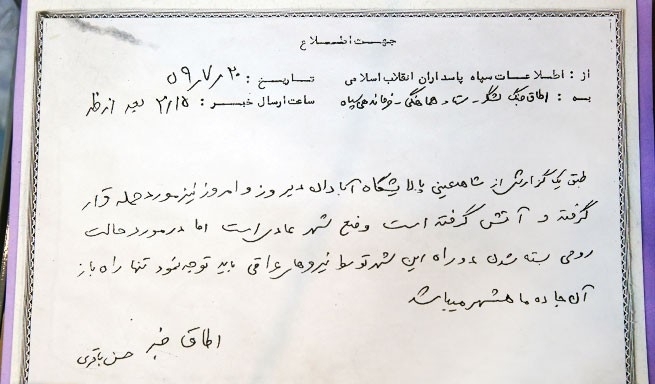 جهت اطلاع
از : اطلاعات سپاه پاسداران انقلاب اسلامی تاریخ : ۵۹٫۷٫۲۰
به : اطاق جنگ لشگر - ستاد هماهنگی - فرماندهی سپاه ساعت ارسال خبر : ۳/۱۵ بعد از ظهر
طبق یک گزارش از شاهد عینی پالایشگاه آبادان دیروز و امروز نیز مورد حمله قرار
گرفته و آتش گرفته است وضع شهر عادی است اما در مورد حالت
روحی بسته شدن دو راه این شهر توسط نیروهای عراقی باید توجه نمود تنها راه باز
آن جاده ماهشهر میباشد
اطاق خبر حسن باقری